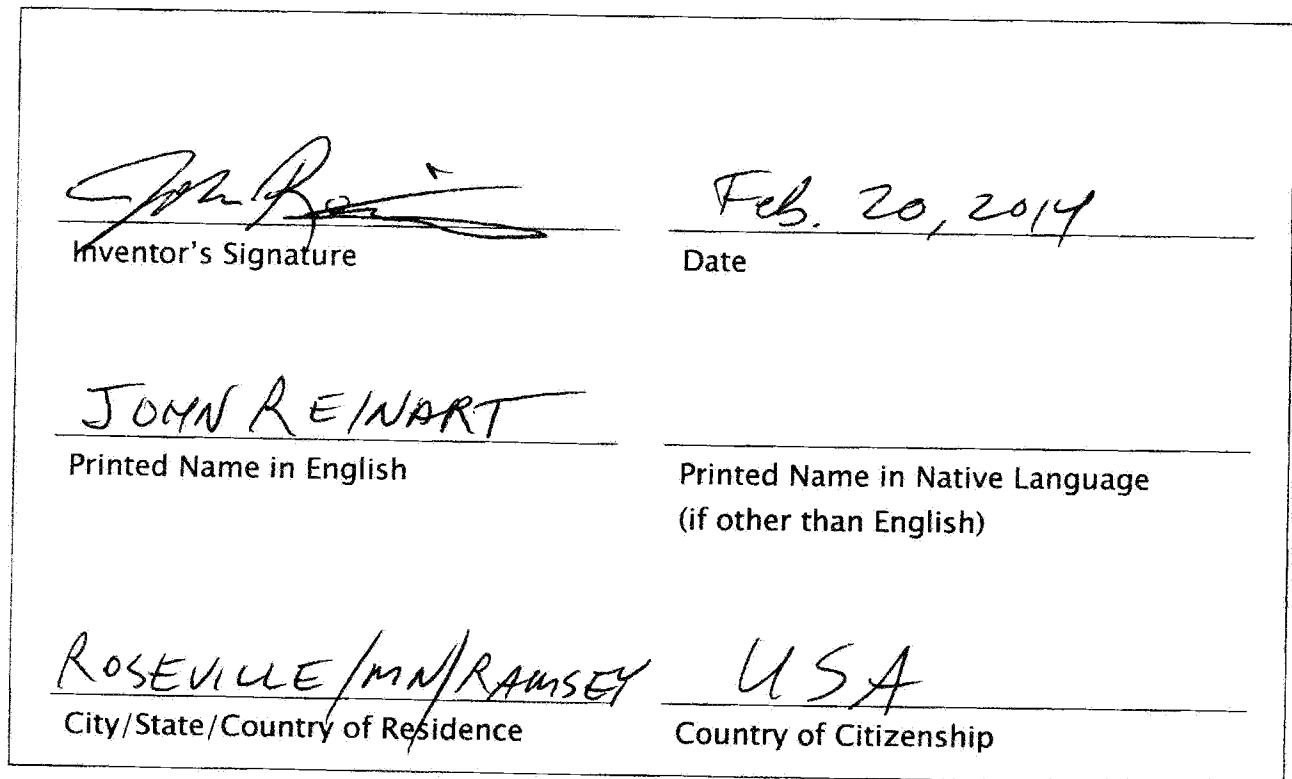 John Rei Feb. 20, 2014
Inventor's Signature Date
JOHN REINART
Printed Name in English Printed Name in Native Language
(if other than English)
ROSEVILLE/MN/RAMSEY USA
City/State/Country of Residence Country of Citizenship